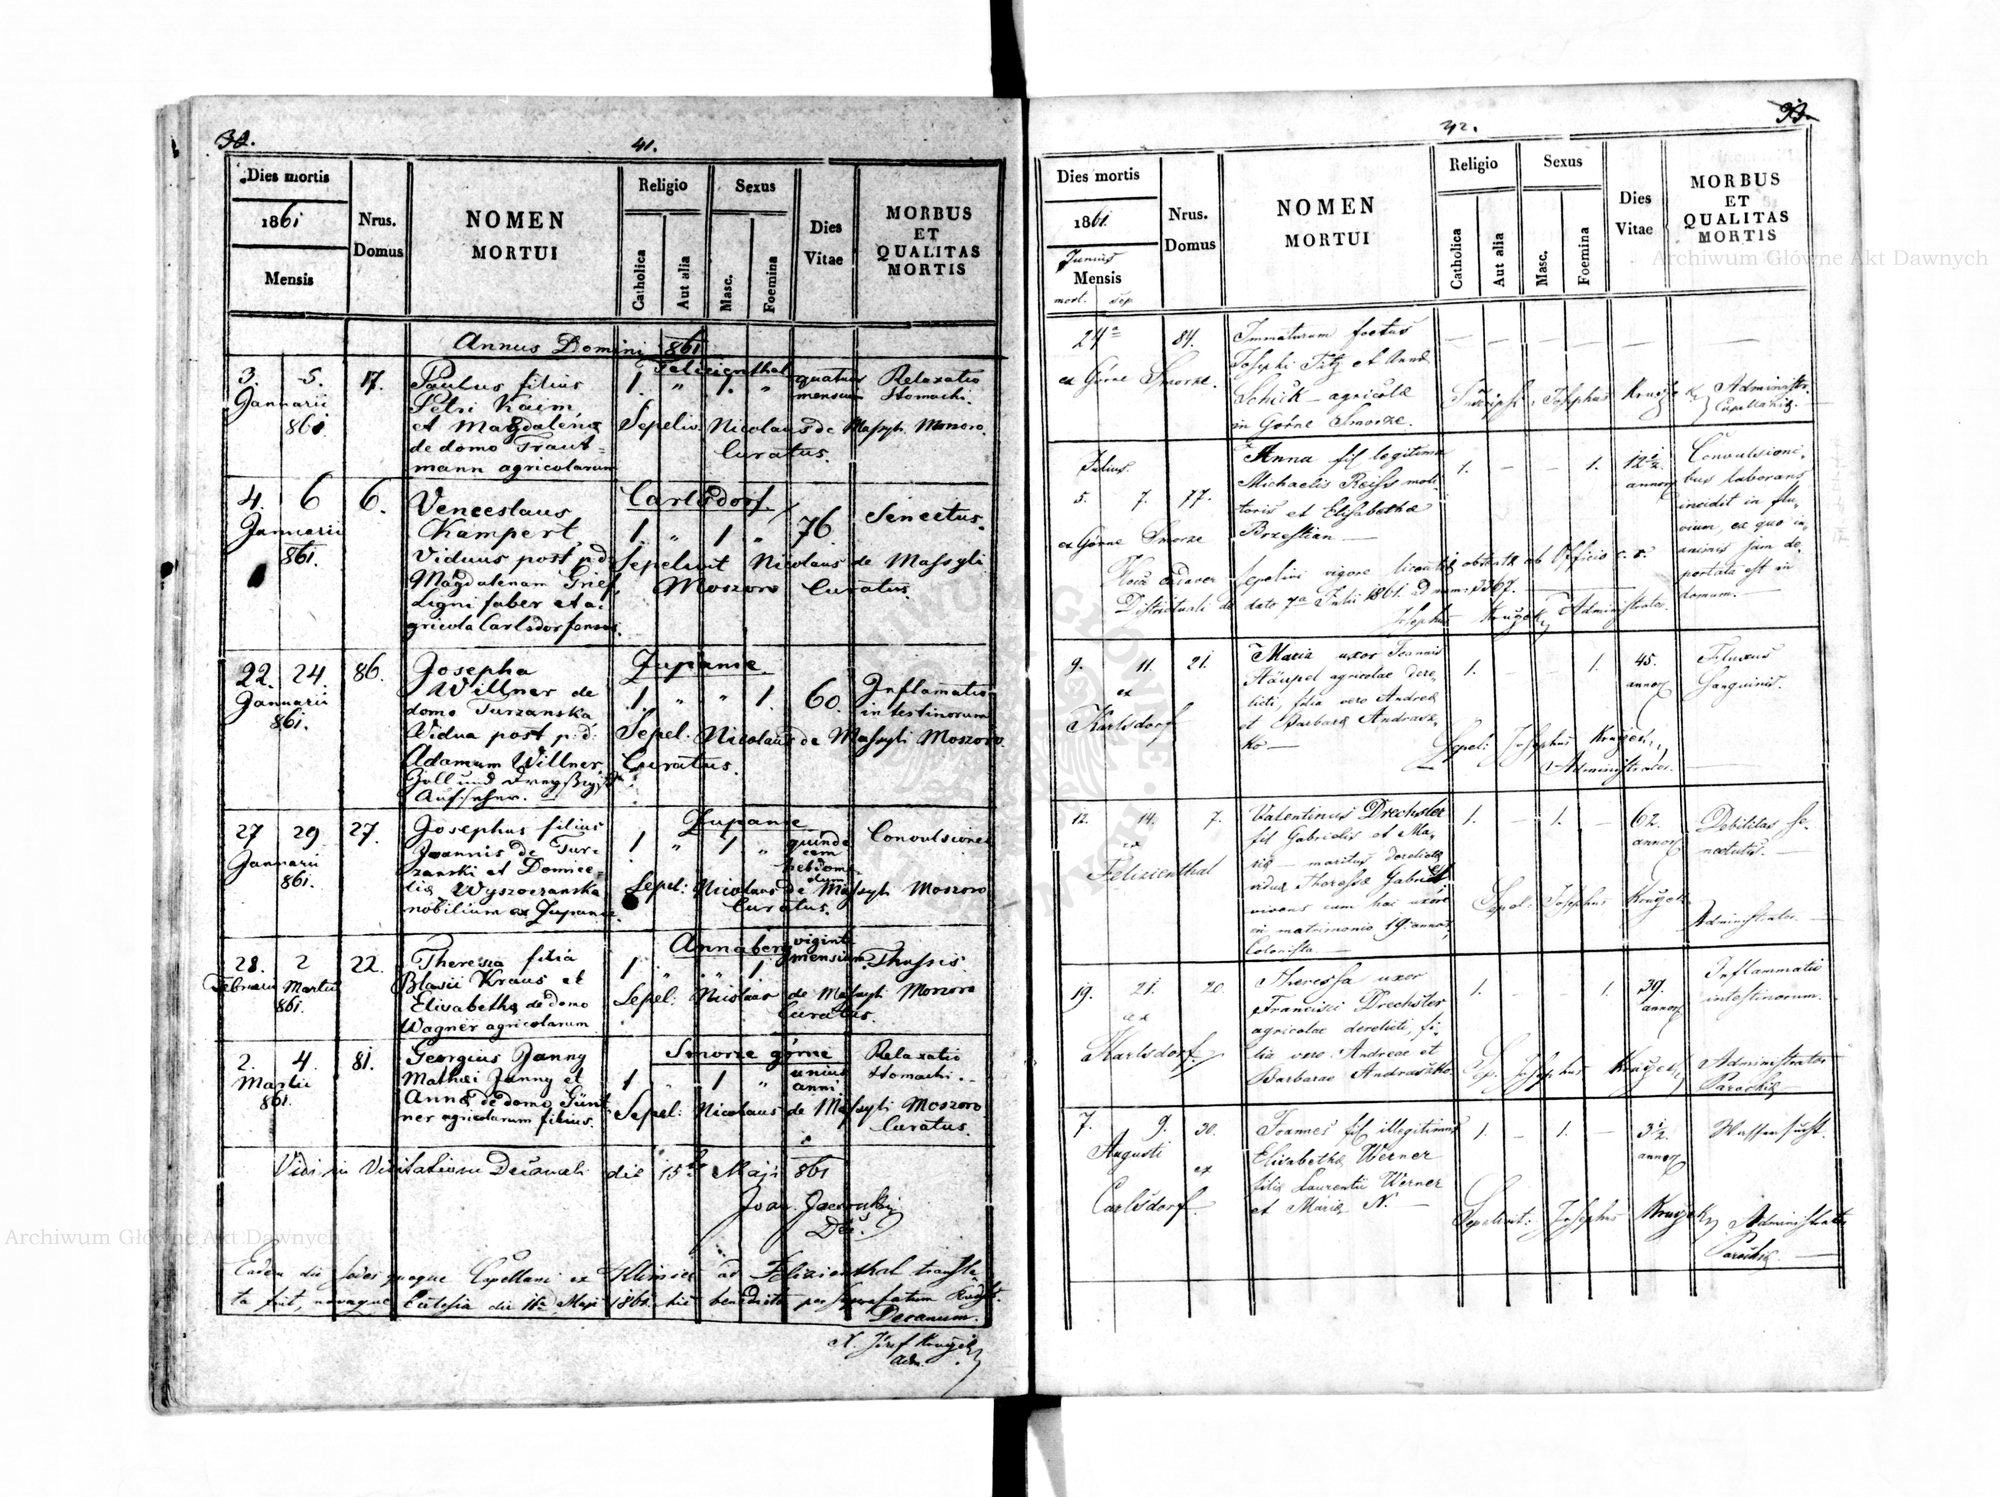 38.
41.
Dies mortis
1861
Mensis
Nrus.
Domus
NOMEN
MORTUI
Religio
Catholica
Aut alia
Sexus
Masc.
Foemina
Dies
Vitae
MORBUS
ET
QUALITAS
MORTIS
Annus Domini 1861
Felizienthal
3. 5. 17. Paulus filius 1. " 1. " quatuor Relaxatio
Januarii Petri Kaim, mensium Stomachi.
861 et Magdalena Sepeliv. Nicolaus de Massyli Moszoro.
de domo Traut= Curatus.
mann agricolarum
4. 6 6. Venceslaus Carlsdorf.
Januarii Kampert, 1. " 1 " 76 Senectus.
861. Viduus post p:d: Sepelivit Nicolaus de Massyli
Magdalenam Grief, Moszoro Curatus.
Ligni faber et a:
gricola Carlsdorfensis.
22. 24. 86. Josepha Zupanie
Januarii Willner de 1. " " 1. 60. Inflamatio
861. domo Turzanska, intestinorum
Vidua post p:d: Sepel: Nicolaus de Massyli Moszoro
Adamum Willner, Curatus.
Zoll und Dreyßigst
Aufseher.
27 29 27. Josephus filius Zupanie
Januarii Joannis de Tur= 1 " 1 " quinde Convulsiones
861. zanski et Domice= cim
lia Wyszoczanska hebdoma
nobilium ex Zupanie. dum
Sepel: Nicolaus de Massyli Moszoro
Curatus.
28. 2 22. Theresia filia Annaberg viginti
Februarii Martii Blasii Kraus et 1 " " 1 mensium Thussis.
861. Elisabetha de domo Sepel: Nicolaus de Massyli Moszoro
Wagner agricolarum Curatus.
2. 4. 81. Georgius Janny Smorze górne Relaxatio
Martii Mathei Janny et 1 " 1 " unius Stomachi.
861. Anna de domo Günt anni
ner agricolarum filius. Sepel: Nicolaus de Massyli Moszoro
Curatus.
Vidi in Visitatione Decanali die 15 Maji 861
Joan.
Dec.
Eadem die sedes quoque Capellani ex Klimiec ad Felizienthal transla
ta fuit, novaque Ecclesia die 16a Maji 1861. hic benedicta per suprafatum
Decanum.
X. Józef
Adm.
42.
39.
Dies mortis
1861.
Junius
Mensis
mort. sep
Nrus.
Domus
NOMEN
MORTUI
Religio
Catholica
Aut alia
Sexus
Masc.
Foemina
Dies
Vitae
MORBUS
ET
QUALITAS
MORTIS
24a 84. Immaturum foetus
Josephi Titz et Anna
ex Górne Smorze. Schick agricolae Josephus Administr.
in Górne Smorze. Capellaniae.
Julius. Anna fil legitima 1. – – 1. 12 1/2 Convulsioni
5. 7. 77. Michaelis Reiss moli annor bus laborans
toris et Elisabethae incidit in flu
ex Górne Smorze Brzestian vium, ex quo in
animis jam de
portata est in
domum.
Hocce cadaver sepelivi vigore ab Officio c. r.
Districtuali de dato 7a Julii 1861. ad num: 3367.
Josephus Administrator
9. 11. 21. Maria uxor Joannis 1. – – 1. 45. Fluxus
ex Häupel agricolae dere annor Sanguinis.
Karlsdorf licti, filia vero Andreae
et Barbara Andrasz
ko Sepel: Josephus
Administrator.
12. 14. 7. Valentinus Drechsler 1. – 1. – 62. Debilitas se
ex fil Gabrielis et Ma annor nectutis.
Felizienthal riae maritus derelictae
viduae Theresiae Gabriel
vivens cum hac uxore Sepel: Josephus
in matrimonio 19. annor. Administrator.
Colonista
19. 21. 20. Theressa uxor 1. – – 1. 39. Inflammatio
ex Francisci Drechsler annor intestinorum.
Karlsdorf. agricolae derelicti, fi
lia vero Andreae et Sep. Josephus Administrator
Barbarae Andraszko Parochiae
7. 9. 30. Joannes fil illegitimus 1. – 1. – 3 1/2. Wassersucht.
Augusti Elisabetha Werner annor
ex filia Laurentii Werner
Carlsdorf. et Maria N. Sepelivit: Josephus Administrator
Parochiae
Archiwum Główne Akt Dawnych
Archiwum Główne Akt Dawnych